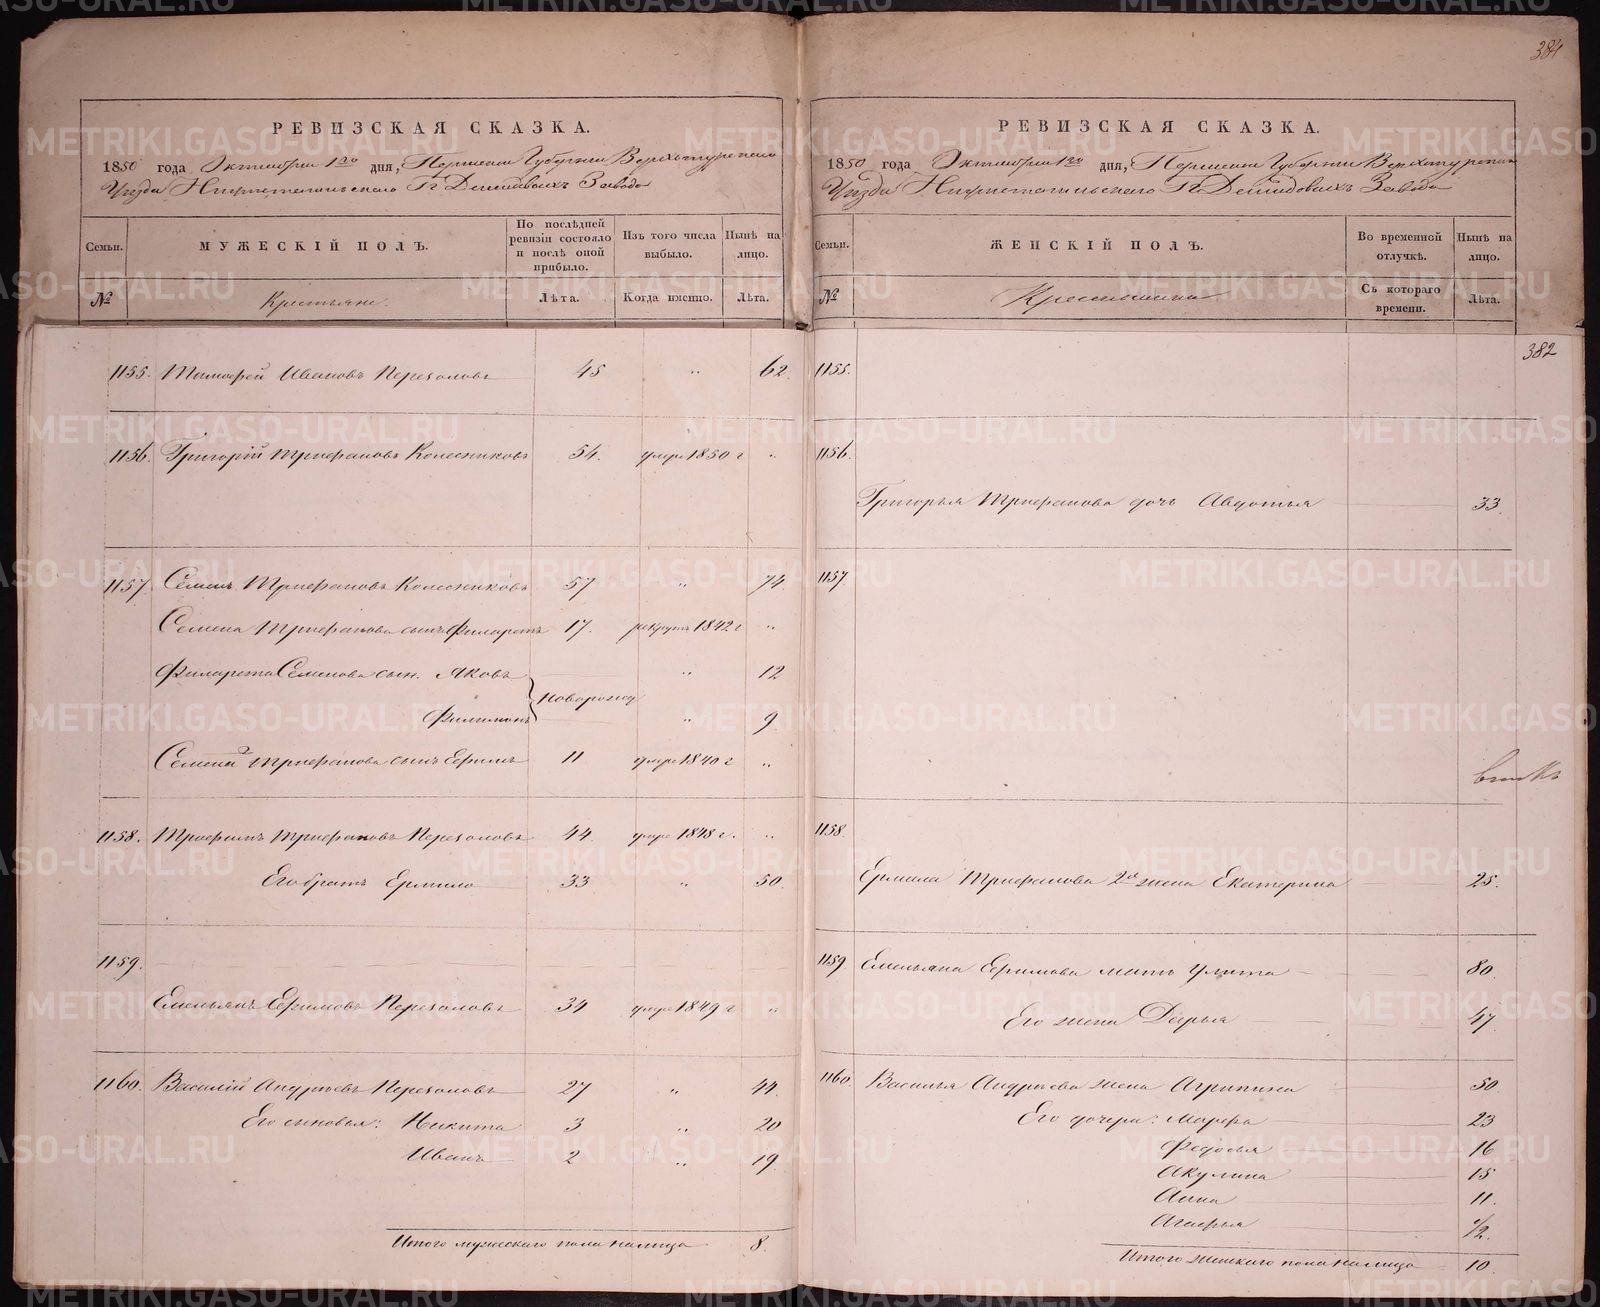 384
РЕВИЗСКАЯ СКАЗКА.
1850 года Октября 1го дня, Пермской Губернии Верхотурскаго
Уѣзда Нижнетагильскаго Гг Демидовыхъ Завода
Семьи.
МУЖЕСКІЙ ПОЛЪ.
По послѣдней ревизіи состояло и послѣ оной прибыло.
Изъ того числа выбыло.
Нынѣ на лицо.
№
Крестьяне.
Лѣта.
Когда именно.
Лѣта.
1155. Тимофей Ивановъ Перехаловъ 45 " 62.
1156. Григорій Трифановъ Колесниковъ 54. умре 1850 г "
1157 Семенъ Трифановъ Колесниковъ 57 " 74
Семена Трифанова сынъ Филаретъ 17. рекрутъ 1842 г "
Филарета Семенова сын. Яковъ " 12
новорожд
Филимонъ " 9
Семена Трифанова 2 сынъ Ефимъ 11 умре 1840 г "
1158. Трифанъ Трифановъ Перехаловъ 44 умре 1848 г. "
Его братъ Ермило 33 " 50.
1159.
Емельянъ Ефимовъ Перехаловъ 34 умре 1849 г "
1160. Василій Андреевъ Перехаловъ 27 " 44.
Его сыновья: Никита 3 " 20
Иванъ 2 " 19
Итого мужескаго пола налицо 8.
РЕВИЗСКАЯ СКАЗКА.
1850 года Октября 1го дня, Пермской Губерніи Верхотурскаго
Уѣзда Нижнетагильскаго Гг Демидовыхъ Завода
Семьи.
ЖЕНСКІЙ ПОЛЪ.
Во временной отлучкѣ.
Нынѣ на лицо.
№
Крестьянки
Съ котораго времени.
Лѣта.
382
1155.
1156
Григорья Трифанова дочь Авдотья 33.
1157
1158.
Ермила Трифанова 2я жена Екатерина 25.
1159. Емельяна Ефимова мать Улита 80.
Его жена Дарья 47.
1160. Василья Андреева жена Агрипина 50
Его дочери: Марфа 23
Федосья 16
Акулина 15
Анна 11.
Агафья 1/2.
Итого женскаго пола налицо 10.
METRIKI.GASO-URAL.RU